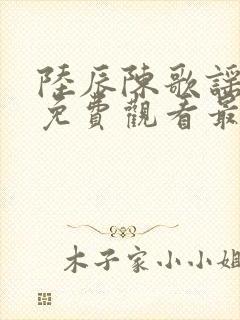 陸辰陳歌謠
免費觀看最
木子家小小姐